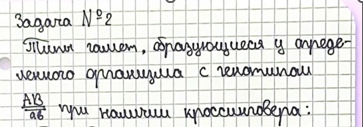 Задача №2
Типы гамет, образующиеся у опреде-
ленного организма с генотипом
AB/ab при наличии кроссинговера: